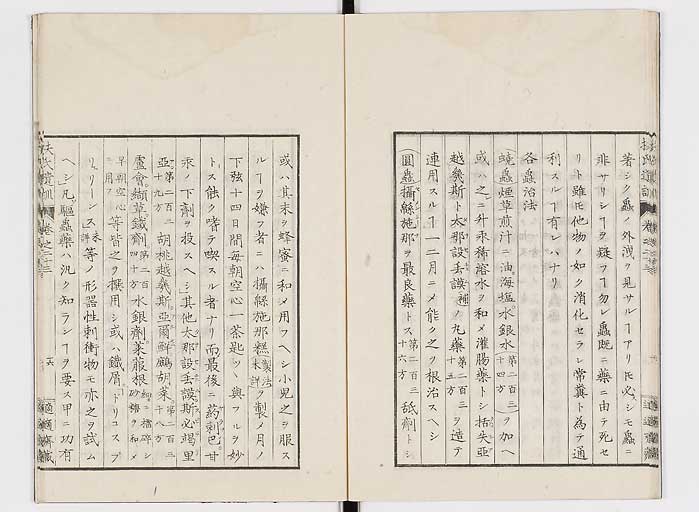 著シク蟲ノ外洩ヲ見サルヿアリ𪜈必シモ蟲ニ
非サリシヿヲ疑フヿ勿レ蟲既ニ藥ニ由テ死セ
リト雖𪜈他物ノ如ク消化セラレ常糞ト為テ通
利スルヿ有レハナリ
各蟲治法
蟯蟲煙草煎汁ニ油海塩水銀水第二百三十四方ヲ加ヘ
或ハ之ニ升汞稀溶水ヲ和メ灌腸藥トシ括失亞
越幾斯ト太那設丢謨ノ丸藥第二百三十五方ヲ造テ
連用スルヿ一二月ニメ能ク之ヲ根治スヘシ
圓蟲攝綿施那ヲ最良藥トス第二百三十六方舐劑トシ
或ハ其末ヲ蜂蜜ニ和メ用フヘシ小児之ヲ服ス
ルヿヲ嫌フ者ニハ攝綿施那糕製法未詳ヲ製メ月ノ
下弦十四日間毎朝空心一茶匙ツヽ與フルヲ妙
トス蝕ク嗜テ喫スル者ナリ而最後ニ葯剌巴甘
汞ノ下劑ヲ投スヘシ其他太那設丢謨斯必竭里
亞第二百三十七方胡桃越幾斯亞爾鮮鷓胡菜第二百三十八方
蘆會纈草鐵劑第二百四十方水銀劑菉菔根細ニ擂碎シ砂糖ヲ和メ
早朝空心ニ用フ等皆之ヲ撰用シ或ハ鐵屑ドリコスプ
リゝーンス未詳等ノ形器性刺衝物モ亦之ヲ試ム
ヘシ凡驅蟲藥ハ汎ク知ランヿヲ要ス甲ニ功有
扶氏遺訓 卷之二十三
十六
適適齋藏